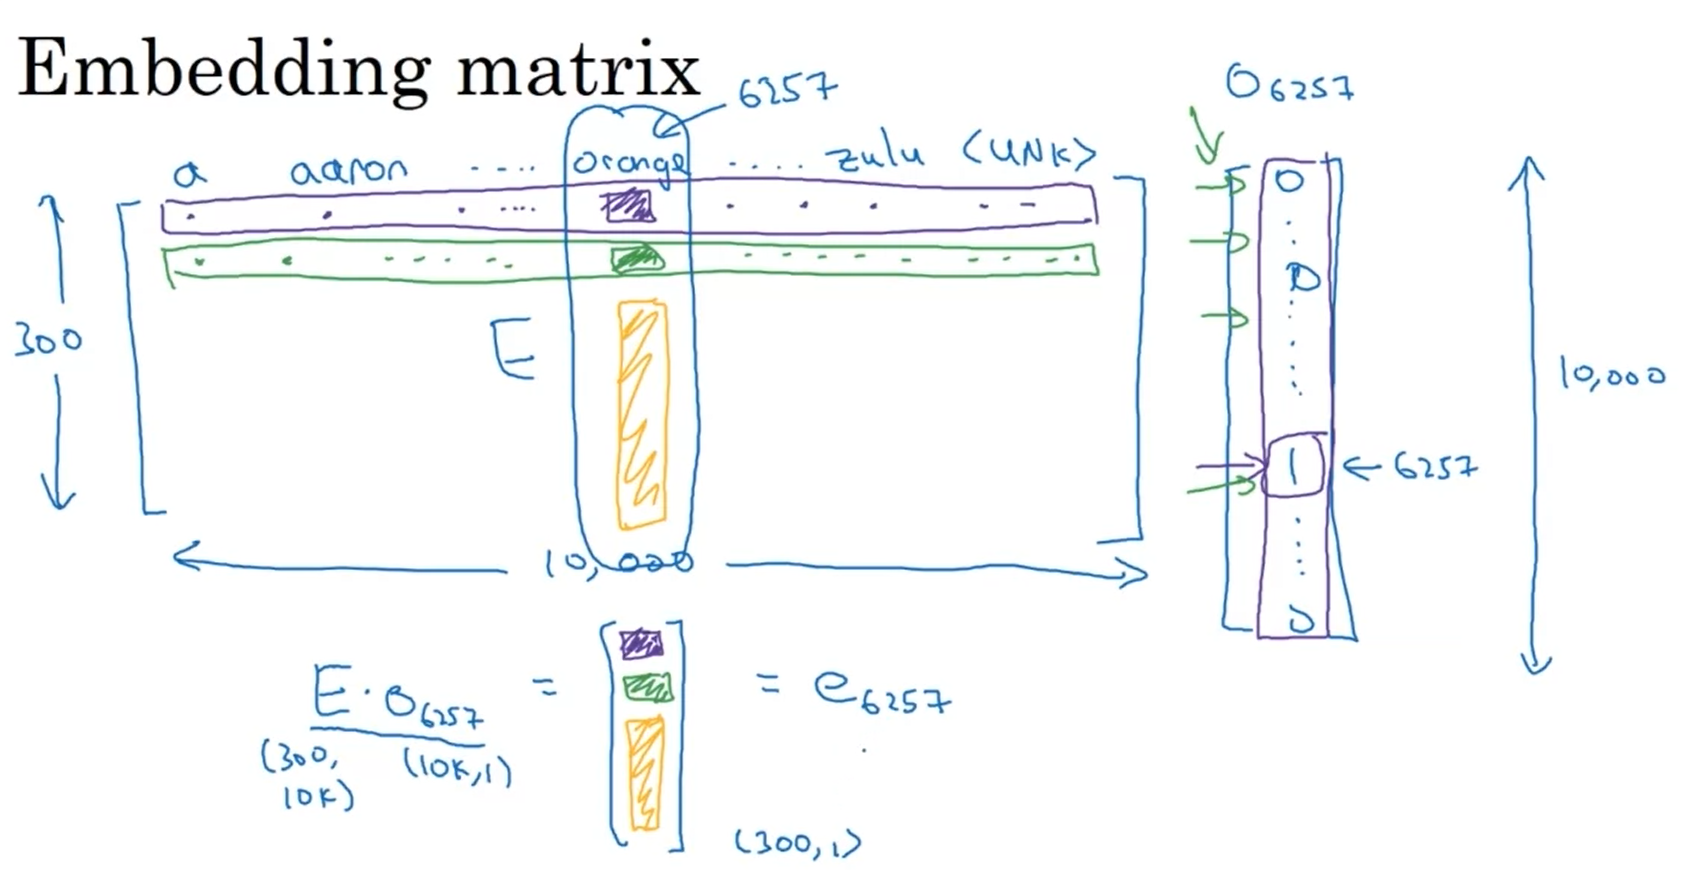 Embedding matrix
6257
O6257
a aaron ..... orange ..... zulu <UNK>
0
0
300
E
10,000
1 ← 6257
10,000
0
E · O6257 = [ ] = e6257
(300, 10K) (10K,1)
(300,1)